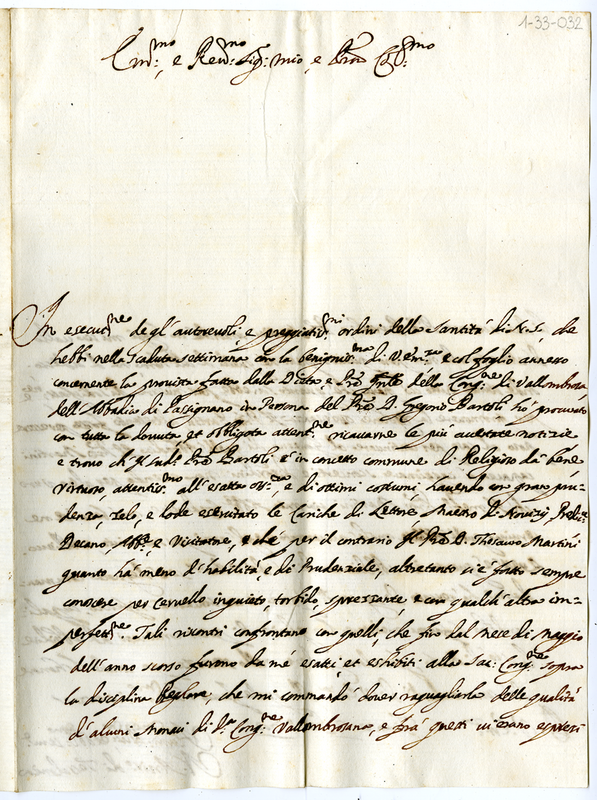 1-33-032
Em:mo, e Rev:mo Sig: mio, e Pron Col:mo
In esecut:ne degl'autorevoli e pregiatis:mi ordini della Santità di N.S., che
hebbi nella scaduta settimana con la benignis:ma di V. Em:za e col foglio annesso
concernente la provista fatta dalla Dieta e Pre Gnle della Cong:ne di Vallombrosa,
dell'Abbadia di Passignano in Persona del Pre D. Gregorio Bartoli hò procurato
con tutta la dovuta et obbligata attent:ne ricavarne le più accertate notizie
e trovo ch'il sud:o Pre Bartoli è in concetto commune di Religioso dà bene
virtuoso, attentis:mo all'esatta oss:za, e di ottimi costumi, havendo con gran pru-
denza, zelo, e lode esercitato le cariche di Lettore, Maestro di Novizij
Decano, Abb:e e Visitatore, e che per il contrario il Pre D. Thesauro Martini
quanto hà meno d'habilità, e di Prudenziale, altretanto si è fatto sempre
conoscere per cervello inquieto, torbido, sprezzante, e con qualch'altra im-
perfett:ne. Tali riscontri confrontano con quelli, che fin dal mese di Maggio
dell'anno scorso furono da mè esatti, et eshibiti alla Sac: Cong:ne sopra
la disciplina Reglare, che mi commandò dover raguagliarla delle qualità
d'alcuni Monaci di d:a Cong:ne Vallombrosana, e frà questi vi erano espressi